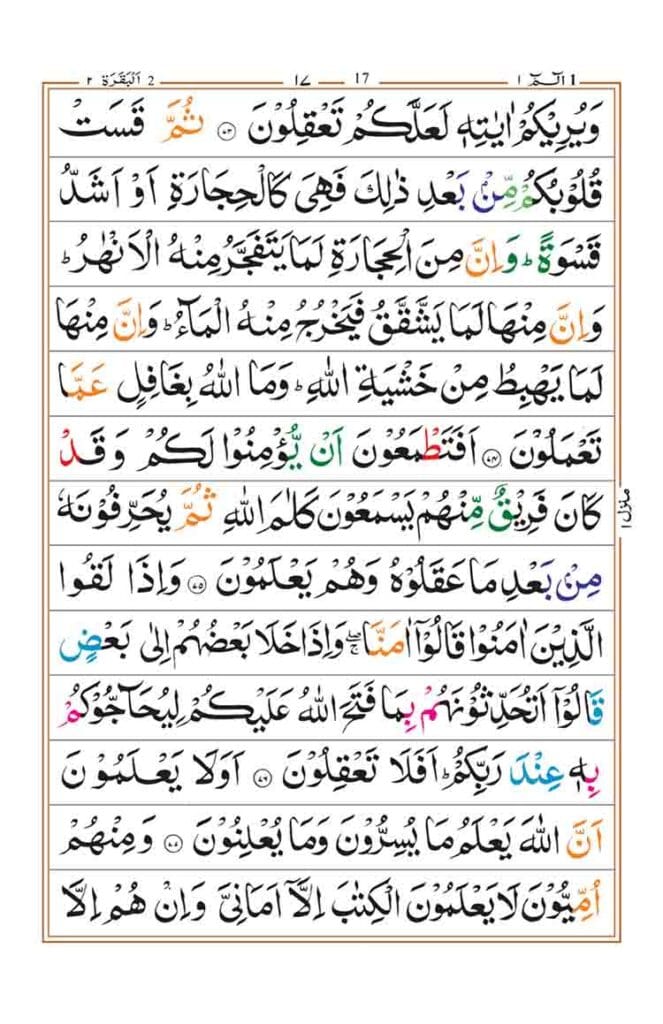 الٓمّٓ ١ 1 17 ١٧ 2 اَلْبَقَرَة ٢
وَيُرِيْكُمْ اٰيٰتِهٖ لَعَلَّكُمْ تَعْقِلُوْنَ ﴿۷۳﴾ ثُمَّ قَسَتْ
قُلُوْبُكُمْ مِّنْۢ بَعْدِ ذٰلِكَ فَهِىَ كَالْحِجَارَةِ اَوْ اَشَدُّ
قَسْوَةً ؕ وَاِنَّ مِنَ الْحِجَارَةِ لَمَا يَتَفَجَّرُ مِنْهُ الْاَنْهٰرُ ؕ
وَاِنَّ مِنْهَا لَمَا يَشَّقَّقُ فَيَخْرُجُ مِنْهُ الْمَآءُ ؕ وَاِنَّ مِنْهَا
لَمَا يَهْبِطُ مِنْ خَشْيَةِ اللّٰهِ ؕ وَمَا اللّٰهُ بِغَافِلٍ عَمَّا
تَعْمَلُوْنَ ﴿۷۴﴾ اَفَتَطْمَعُوْنَ اَنْ يُّؤْمِنُوْا لَكُمْ وَقَدْ
كَانَ فَرِيْقٌ مِّنْهُمْ يَسْمَعُوْنَ كَلٰمَ اللّٰهِ ثُمَّ يُحَرِّفُوْنَهٗ
مِنْۢ بَعْدِ مَا عَقَلُوْهُ وَهُمْ يَعْلَمُوْنَ ﴿۷۵﴾ وَاِذَا لَقُوا
الَّذِيْنَ اٰمَنُوْا قَالُوْۤا اٰمَنَّا ۖۚ وَاِذَا خَلَا بَعْضُهُمْ اِلٰى بَعْضٍ
قَالُوْۤا اَتُحَدِّثُوْنَهُمْ بِمَا فَتَحَ اللّٰهُ عَلَيْكُمْ لِيُحَآجُّوْكُمْ
بِهٖ عِنْدَ رَبِّكُمْ ؕ اَفَلَا تَعْقِلُوْنَ ﴿۷۶﴾ اَوَلَا يَعْلَمُوْنَ
اَنَّ اللّٰهَ يَعْلَمُ مَا يُسِرُّوْنَ وَمَا يُعْلِنُوْنَ ﴿۷۷﴾ وَمِنْهُمْ
اُمِّيُّوْنَ لَا يَعْلَمُوْنَ الْكِتٰبَ اِلَّاۤ اَمَانِىَّ وَاِنْ هُمْ اِلَّا
منزل ١